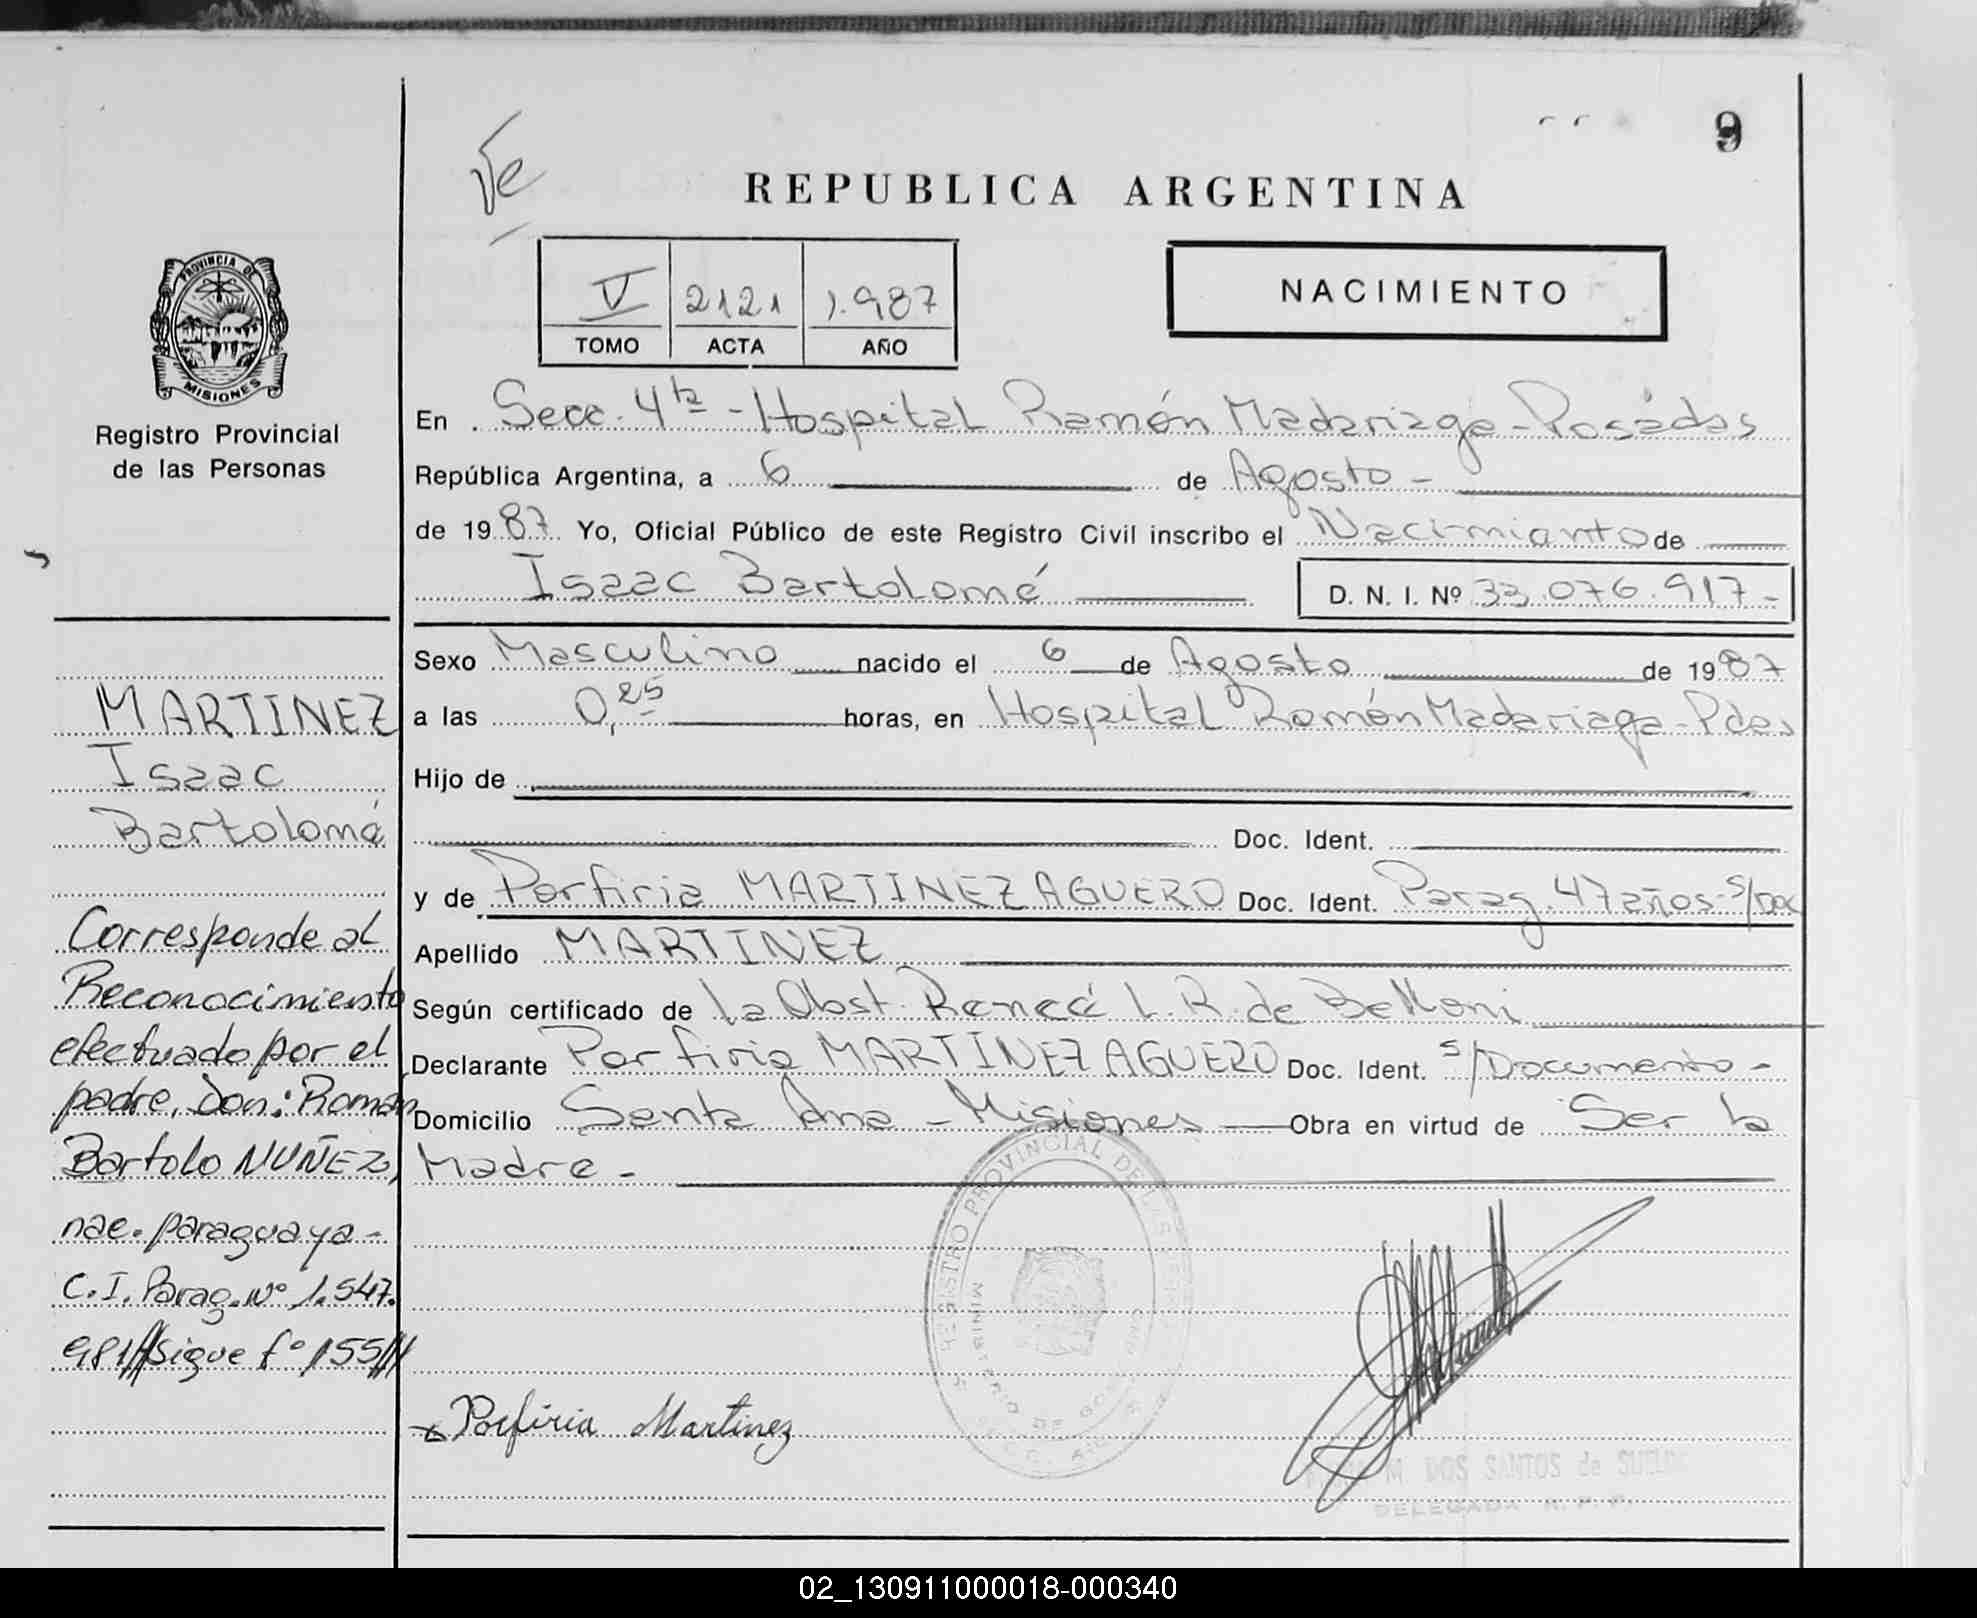 9
REPUBLICA ARGENTINA
V 2121 1.987
TOMO ACTA AÑO
NACIMIENTO
PROVINCIA DE
MISIONES
Registro Provincial
de las Personas
En Secc. 4ta - Hospital Ramón Madariaga - Posadas
República Argentina, a 6 de Agosto -
de 1987 Yo, Oficial Público de este Registro Civil inscribo el Nacimiento de
Isaac Bartolomé D. N. I. Nº 33.076.917-
Sexo Masculino nacido el 6 de Agosto de 1987
a las 0,25 horas, en Hospital Ramón Madariaga - Pdas
Hijo de
Doc. Ident.
y de Porfiria MARTINEZ AGUERO Doc. Ident. Parag. 47 años - s/Doc
Apellido MARTINEZ
Según certificado de la Obst. Reneé L. R. de Belloni
Declarante Porfiria MARTINEZ AGUERO Doc. Ident. s/Documento -
Domicilio Santa Ana - Misiones Obra en virtud de Ser la
Madre -
MARTINEZ
Isaac
Bartolomé
Corresponde al
Reconocimiento
efectuado por el
padre, Don: Roman
Bartolo NUÑEZ,
nac. paraguaya -
C.I. Parag. Nº 1.547.
981//sigue fº 155///
REGISTRO PROVINCIAL DE LAS
MINISTERIO DE
Porfiria Martinez
M DOS SANTOS de
DELEGADA R. P. P.
02_130911000018-000340